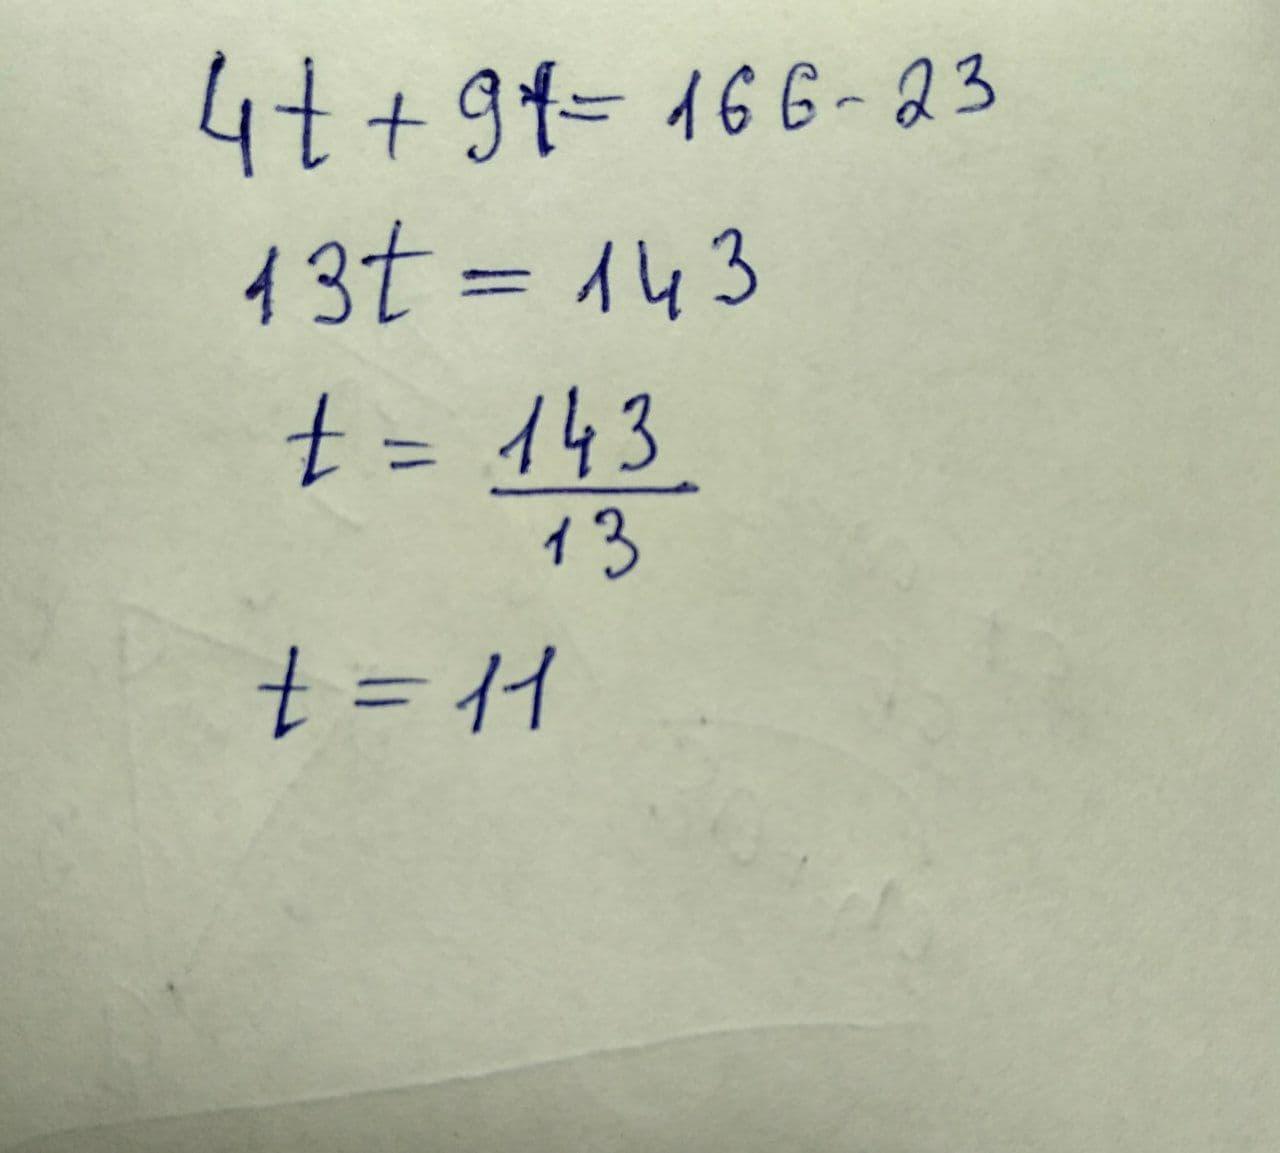 4t + 9t = 166 - 23
13t = 143
t = 143/13
t = 11